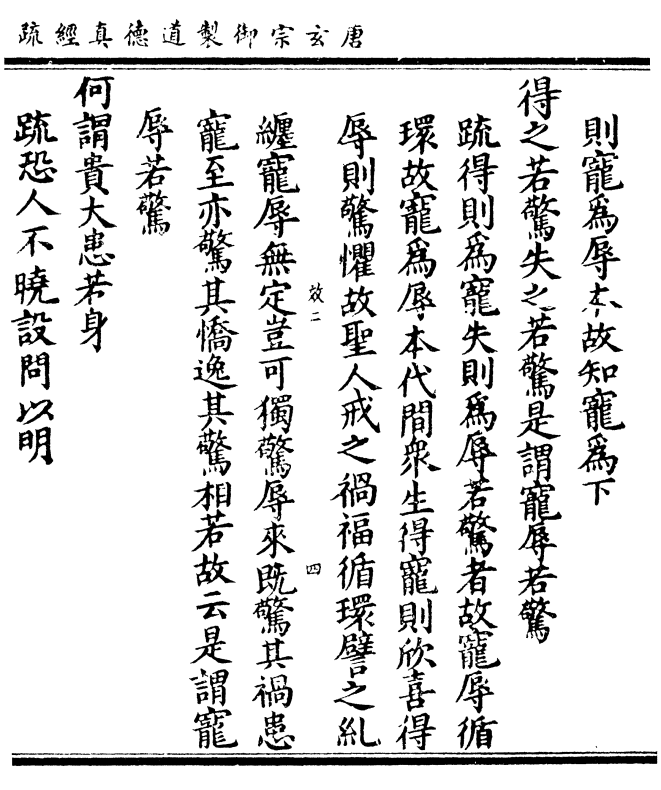 唐玄宗御製道德真經疏
則寵爲辱本故知寵爲下
得之若驚失之若驚是謂寵辱若驚
疏得則爲寵失則爲辱若驚者故寵辱循
環故寵爲辱本代間衆生得寵則欣喜得
辱則驚懼故聖人戒之禍福循環譬之糺
效二
四
纏寵辱無定豈可獨驚辱來既驚其禍患
寵至亦驚其憍逸其驚相若故云是謂寵
辱若驚
何謂貴大患若身
疏恐人不曉設問以明